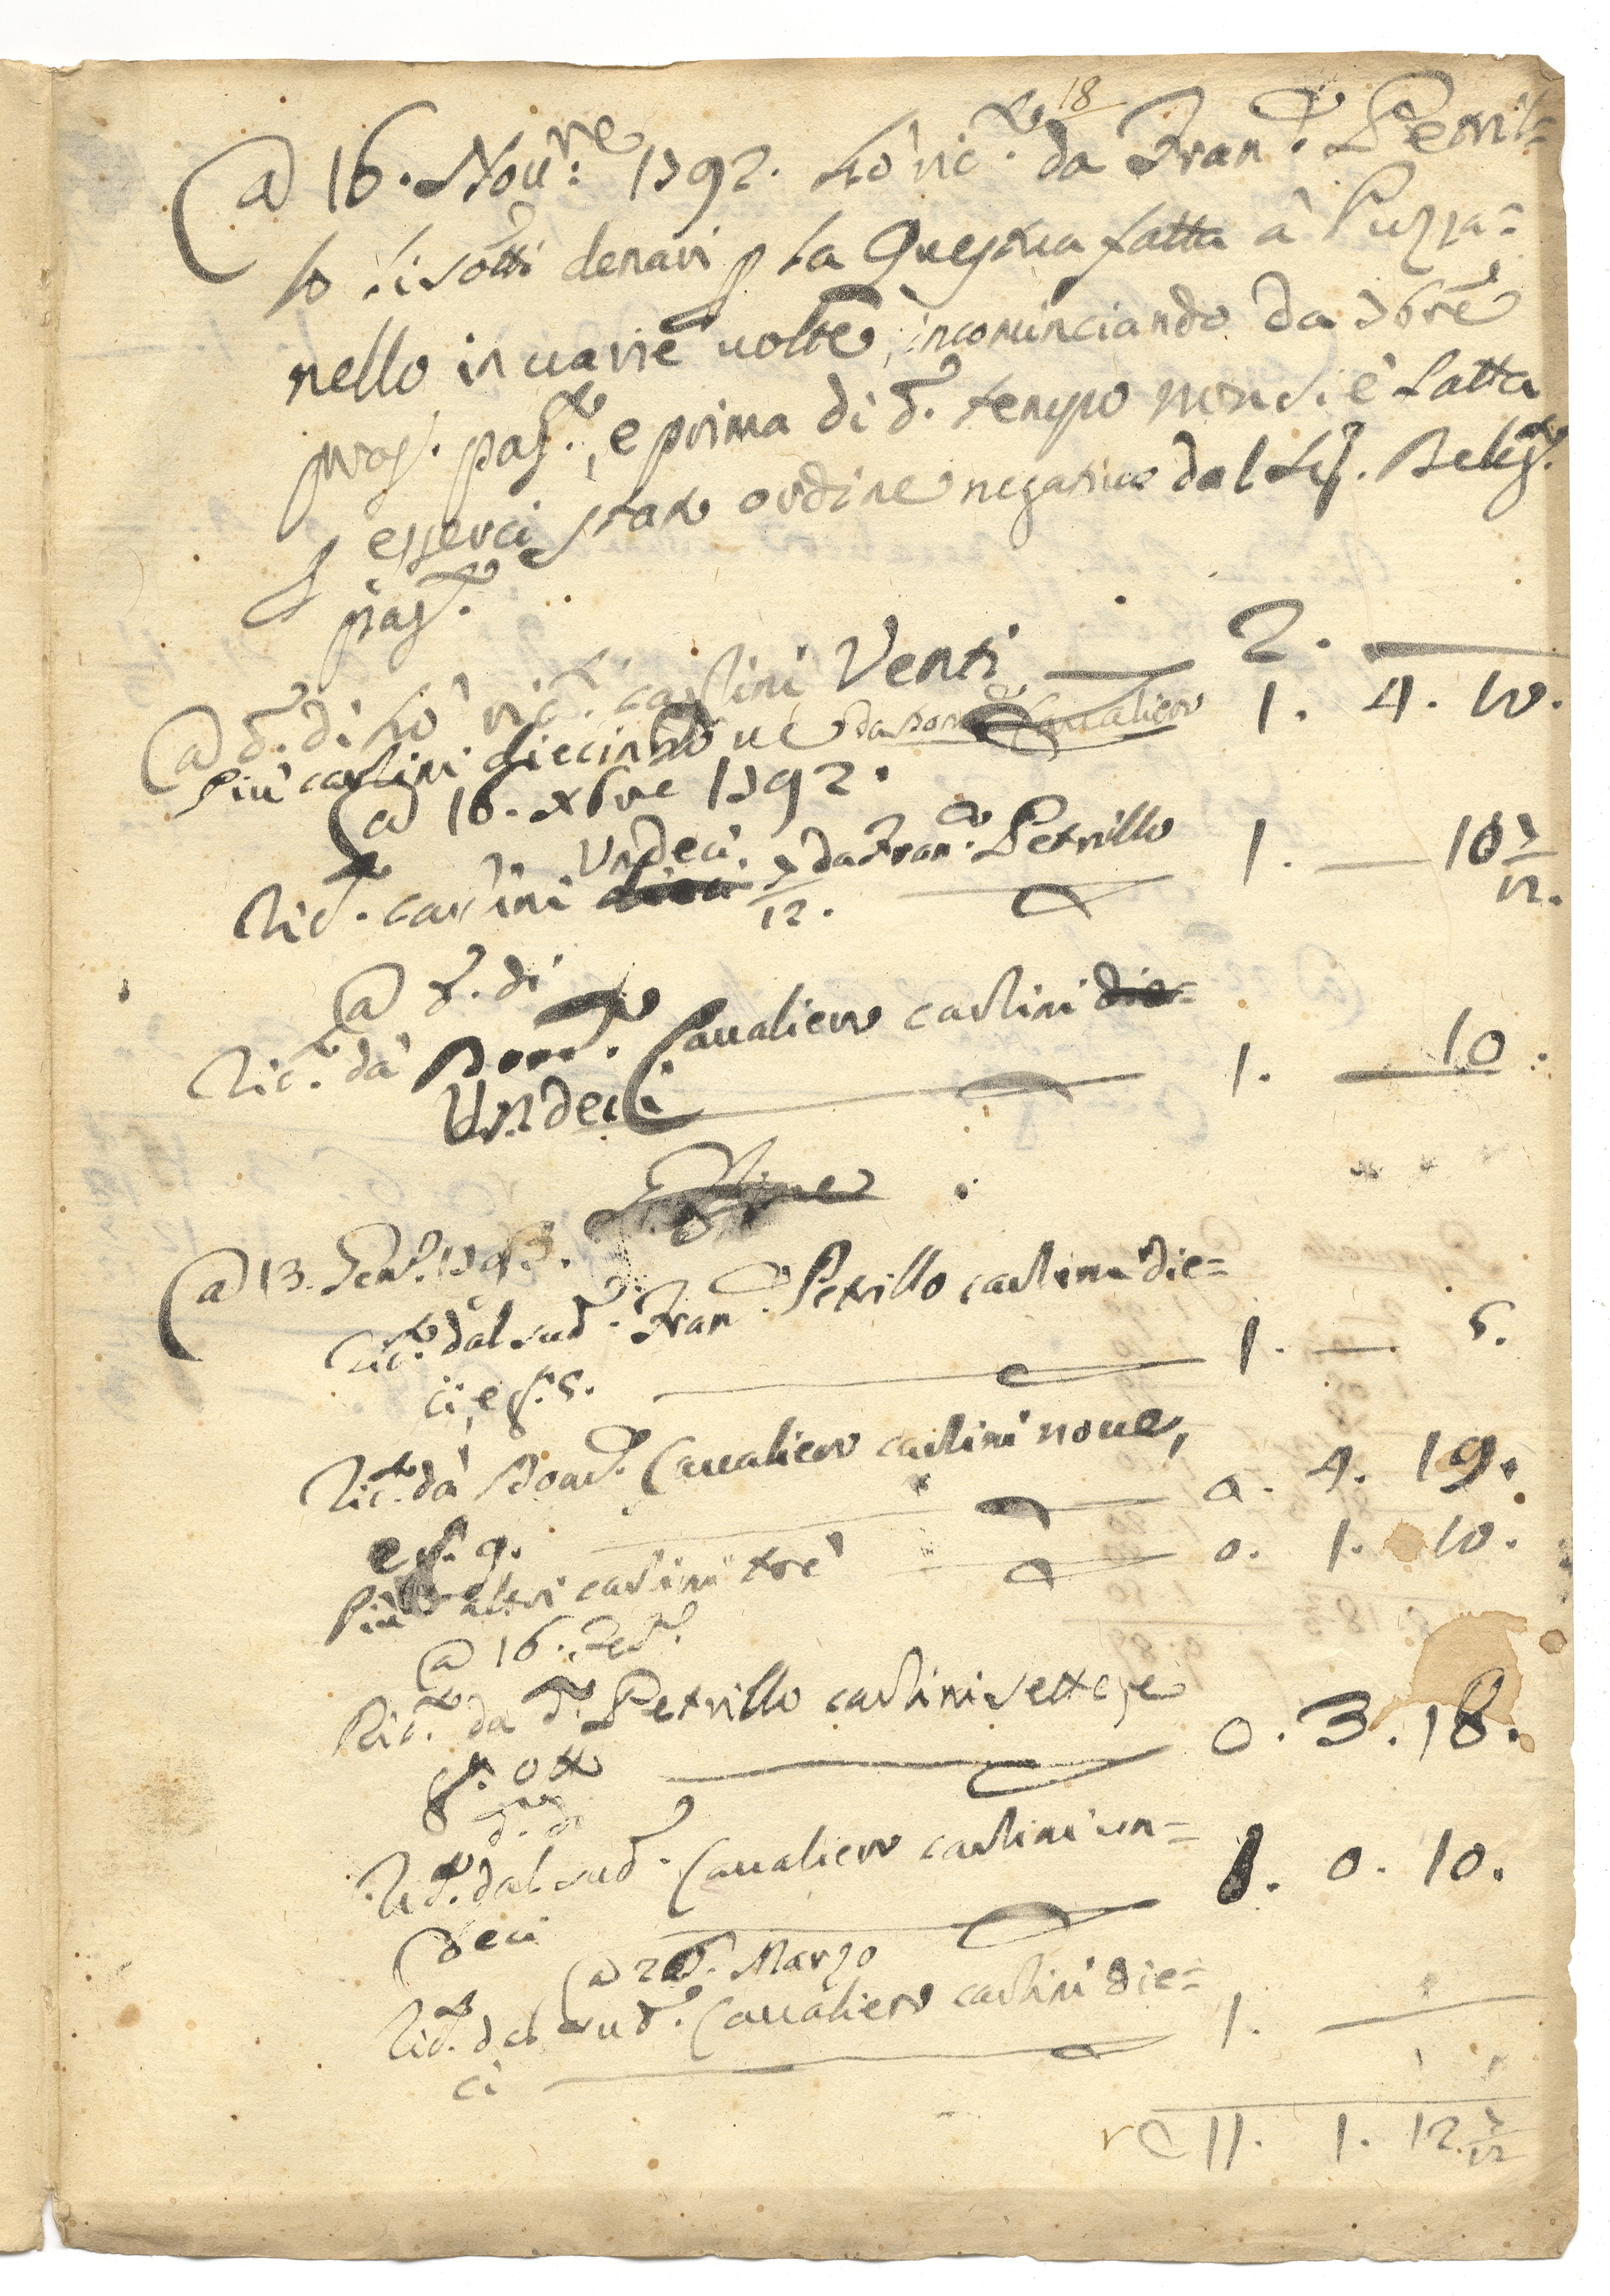 18
A 16. Nou:re 1792. Hò ric.to da Fran.co Petril=
lo li sotti denari p la Questua fatta a Puzza=
nello in uarie uolte, incominciando da 7bre
pros. pas.to, e prima di d.o tempo non si è fatta
p esserci stato ordine negatiuo dal Sig.
pas.to
A d.o dì hò ric.to carlini Venti 2.
Più carlini diecinoue da Dom.co Caualiero 1. 4. 10.
A 16. Xbre 1792.
Ric.to carlini Undeci 7/12. da Fran.co Petrillo 1. — 10 7/12.
A d.o dì
Ric.to da Dom.co Caualiero carlini die=
Undeci 1. — 10.
A 13. Gen.o 1793.
Ric.to dal sud.o Fran.co Petrillo carlini die=
ci, e g.a 5. 1. — 5.
Ric.to da Dom.co Caualiero carlini noue,
e g.a 9. 0. 4. 19.
Più altri carlini trè 0. 1. 10.
A 16. Feb.o
Ric.to da d.o Petrillo carlini sette, e
g.a otto 0. 3. 18.
d.o dì
Ric.to dal sud.o Caualiero carlini un=
deci 1. 0. 10.
A 26. Marzo
Ric.to dal sud.o Caualiero carlini die=
ci 1.
11. 1. 12 7/12